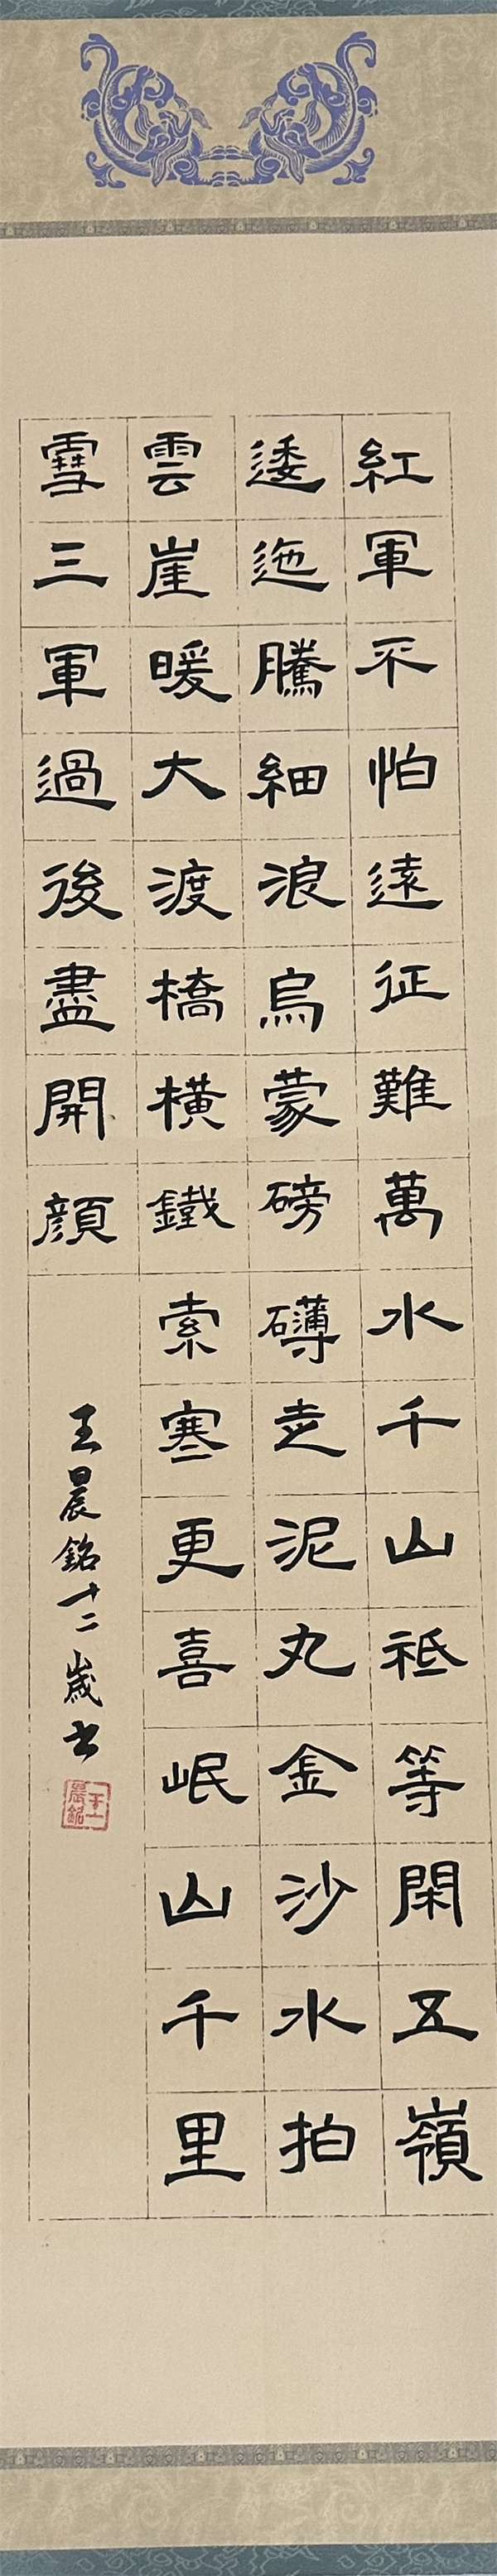 紅軍不怕遠征難萬水千山祇等閑五嶺
逶迤騰細浪烏蒙磅礴走泥丸金沙水拍
雲崖暖大渡橋橫鐵索寒更喜岷山千里
雪三軍過後盡開顏
王晨銘十二歲书
王晨銘